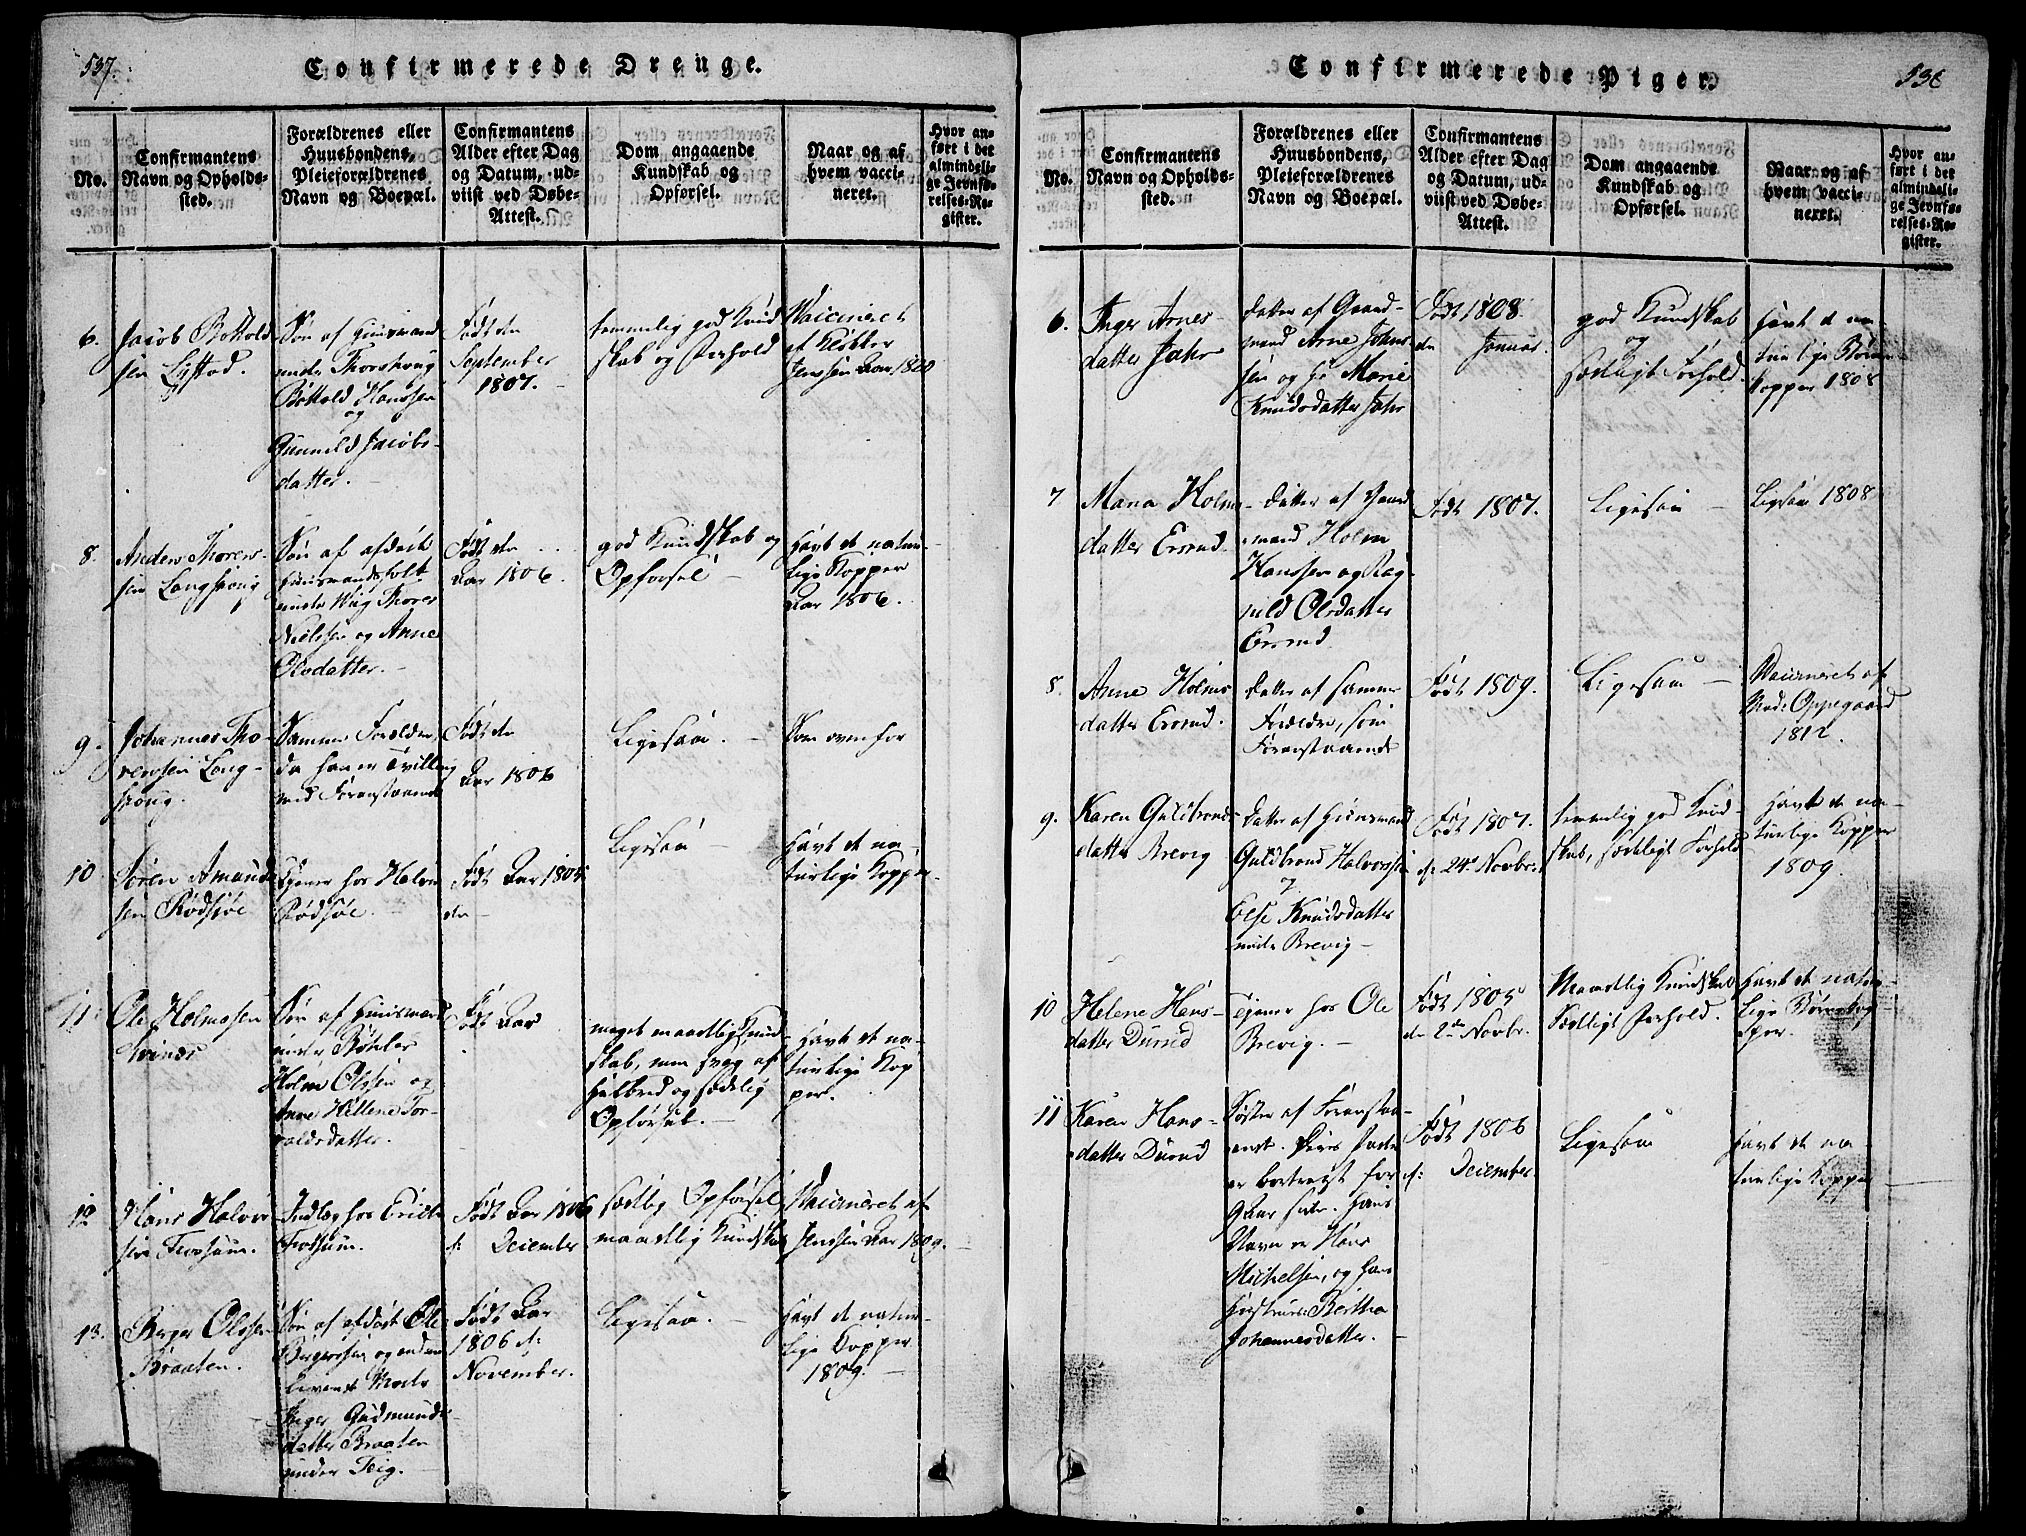 537.
Confirmerede Drenge.
No.
Confirmantens
Navn og Opholds-
sted.
Forældrenes eller
Huusbondens,
Pleieforældrenes
Navn og Boepæl.
Confirmantens
Alder efter Dag
og Datum, ud-
viist ved Døbe-
Attest.
Dom angaaende
Kundskab og
Opførsel.
Naar og af
hvem vacci-
neret.
Hvor an-
ført i det
almindeli-
ge Jevnfø-
relses-Re-
gister.
6.
Jacob Bottold
sen Lystad.
Søn af Huusmand
under Thorshoug
Bottold Hanssen
og
Gunnild Jacobs-
datter.
Født den
September
1807.
temmelig god Kund
skab og Forhold
Vaccineret
af Klokker
Jenssen Aar
8.
Anders Thores-
sen Langshoug
Søn af afdøde
Huusmandsfolk
under Thores
Nielssen og Anne
Olsdatter.
Født den
Aar 1806.
god Kundskab og
Opførsel
Havt de natur-
lige Kopper
Aar 1806.
9.
Johannes Tho-
ressen Lang-
shoug.
Samme Forældre,
da han er Tvilling
med Foranstaaende
Født den
Aar 1806
Ligesaa.
Som ovenfor
10
Søren Amunds
sen Rødsøe
Tjener hos Halvor
Rødsøe.
Født Aar 1805
den
Ligesaa
Havt de na-
turlige Kopper.
11
Ole Holmesen
Søn af Huusmand
under
Holm Olssen og
Anne Hellene Tor-
valdsdatter.
Født Aar
meget maadelig Kund
skab, men svag af
Helbred og sædelig
Opførsel.
Havt de na-
turlige Kop
per.
12
Hans Halvor
sen Frossum.
Indlæg hos Erich
Frossum.
Født Aar 1806
d: December
sædelig Opførsel
maadelig Kundskab
Vaccineret af
Jenssen Aar 1809.
13.
Birger Olssen
Braaten.
Søn af afdøde Ole
Birgerssen og endnu
levende Moder
Inger Gudmunds
datter Braaten
under Teig.
Født Aar
1806 d:
November.
Ligesaa.
Havt de natur-
lige Kopper
1809.
Confirmerede Piger.
No.
Confirmantens
Navn og Opholds-
sted.
Forældrenes eller
Huusbondens,
Pleieforældrenes
Navn og Boepæl.
Confirmantens
Alder efter Dag
og Datum, ud-
viist ved Døbe-
Attest.
Dom angaaende
Kundskab og
Opførsel.
Naar og af
hvem vacci-
neret.
Hvor an-
ført i det
almindeli-
ge Jevnfø-
relses-Re-
gister.
6.
Inger Arnes-
datter Jahr
Datter af Gaard-
mand Arne Johns
sen og H: Marie
Knudsdatter Jahr
Født 1808
den Januar.
god Kundskab
og
sædeligt Forhold.
Havt de na-
turlige Børne-
kopper 1808
7
Maria Holms-
datter Ersrud.
Datter af Gaard
mand Holm
Hanssen og Rag-
nild Olsdatter
Ersrud.
Født 1807.
Ligesaa
Ligesaa 1808
8.
Anne Holms
datter Ersrud.
Datter af samme
Forældre, som
Foranstaaende
Født 1809.
Ligesaa
Vaccineret af
Mad: Oppegaard
1812.
9.
Karen Guldbrands-
datter Brevig
Datter af Huusmand
Guldbrand Halvorssen
Else Knudsdatter
under Brevig
Født 1807.
d: 24de Novbr.
temmelig god Kund-
skab, sædeligt Forhold
Havt de na-
turlige Kopper
1809.
10
Helene Hans-
datter Durud
Tjener hos Ole
Brevig.
Født 1805
den 2den Novbr.
Maadelig Kundskab
Sædeligt Forhold.
Havt de natur-
lige Børnekop-
per.
11
Karen Hans-
datter Durud
Søster af Foranstaa-
ende. Deres Fader
er bortreyst for
9 Aar siden. Hans
Navn er Hans
Michelsen, og hans
Hustrues Bertha
Johannesdatter.
Født 1806
d: December
Ligesaa
Havt de na-
turlige Kopper